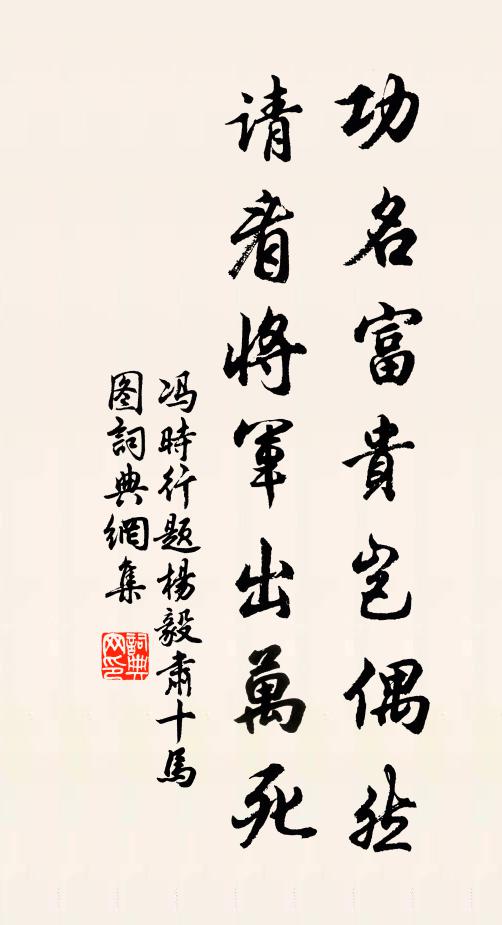 功名富貴岂偶然
请看將軍出萬死
冯時行题楊毅肅十馬
图詞典網集
詞典
网印